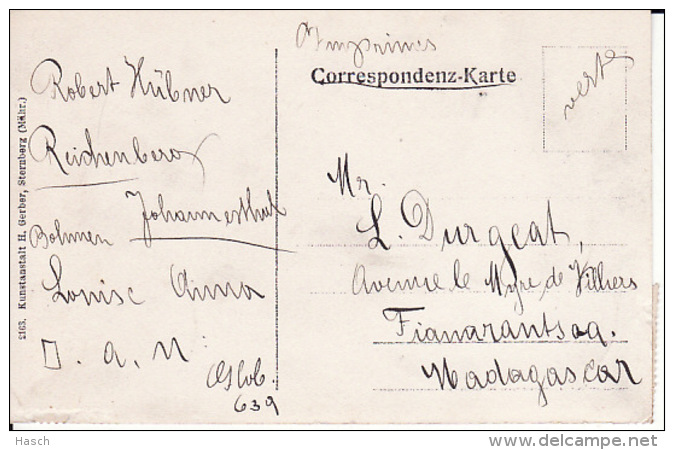 Imprimés
Correspondenz-Karte
verte
Robert Hübner
Reichenberg
Johannesthal
Bohmen
Louise Anna
J. a. N:
Glob.
639
Mr.
L. Durgeat,
Avenue le Myre de Villiers
Fianarantsoa.
Madagascar
2163. Kunstanstalt H. Gerber, Sternberg (Mähr.)
Hasch
www.delcampe.net